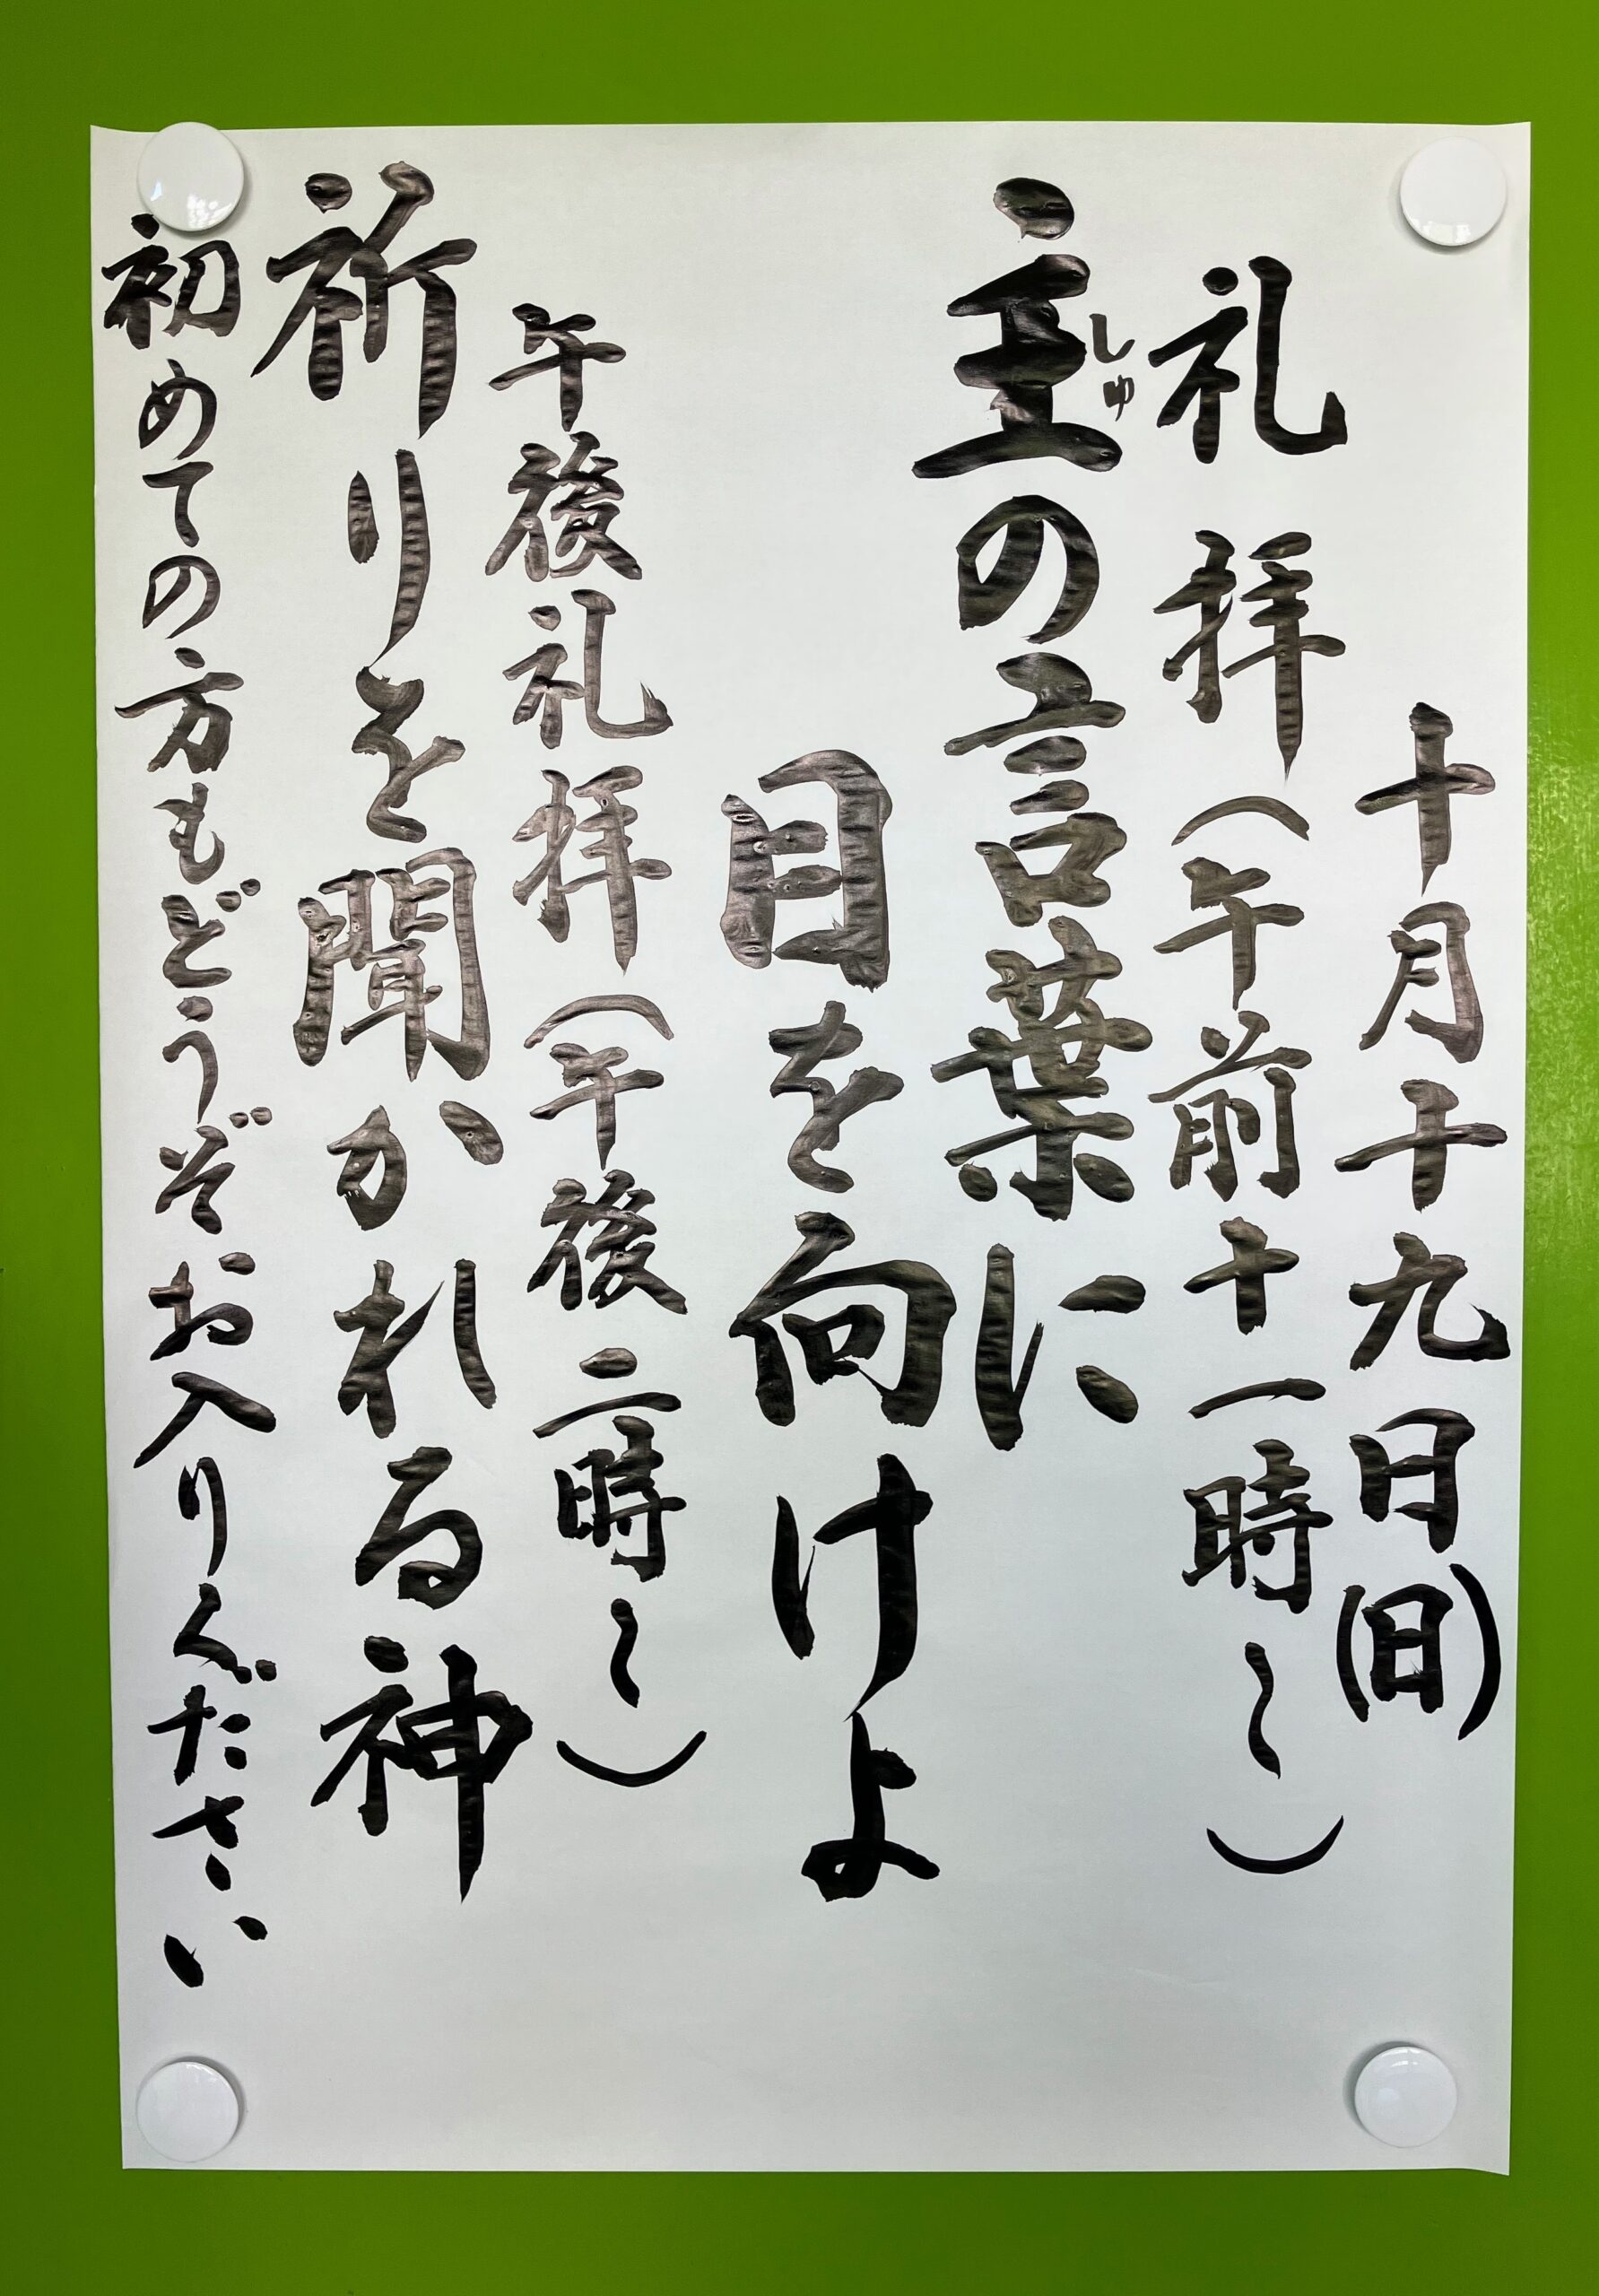 十月十九日(日)
礼拝(午前十一時～)
主の言葉に
しゅ
目を向けよ
午後礼拝(午後二時～)
祈りを聞かれる神
初めての方もどうぞお入りください